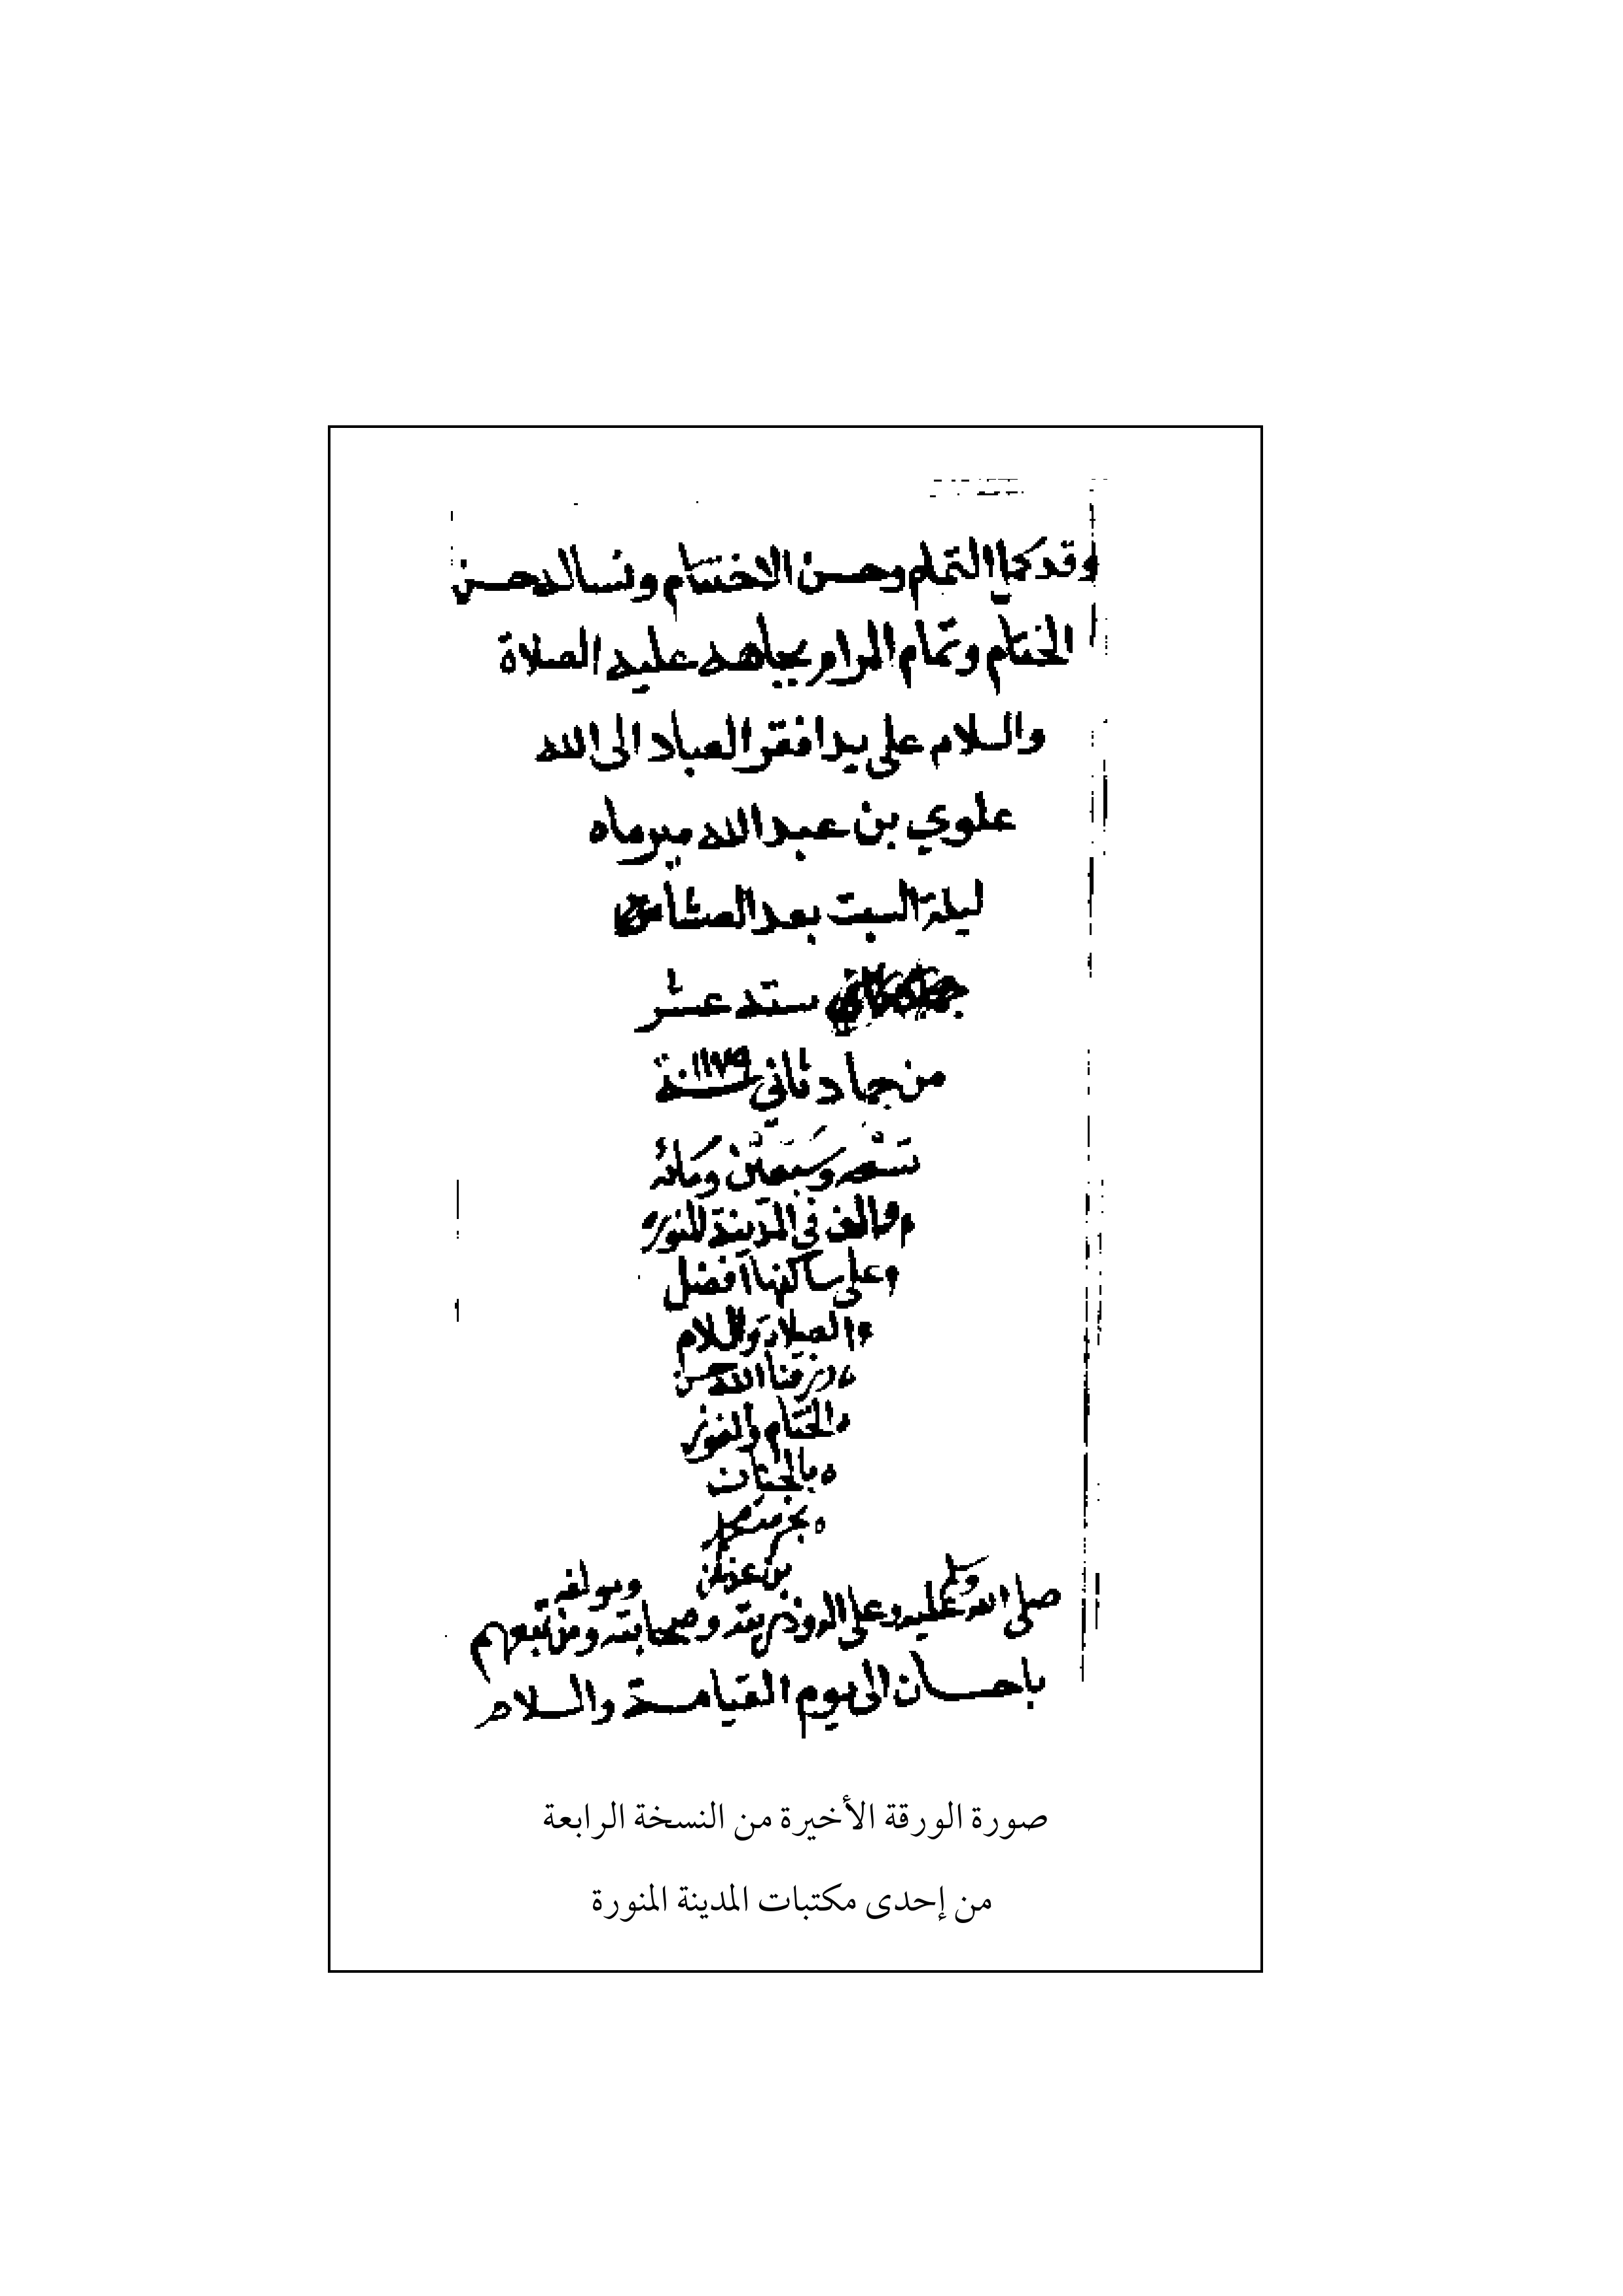 وقد كمل التمام وحسن الاختتام ونساله حسن
الختام وتمام المرام بجاهه عليه الصلاة
والسلام على يد افقر العباد الى الله
علوي بن عبد الله ميرماه
ليلة السبت بعد العشا
ستة عشر
من جماد ثاني سنة ١١٧٩
تسعه وسبعين ومائه
والف في المدينة المنوره
وعلى ساكنها افضل
الصلاة والسلام
ورزقنا الله حسن
الختام والفوز
بالجنان
بحرمة
بن عدنان
صلى الله عليه وسلم وعلى اله وذريته وصحابته ومن تبعهم
باحسان الى يوم القيامة والسلام
صورة الورقة الأخيرة من النسخة الرابعة
من إحدى مكتبات المدينة المنورة